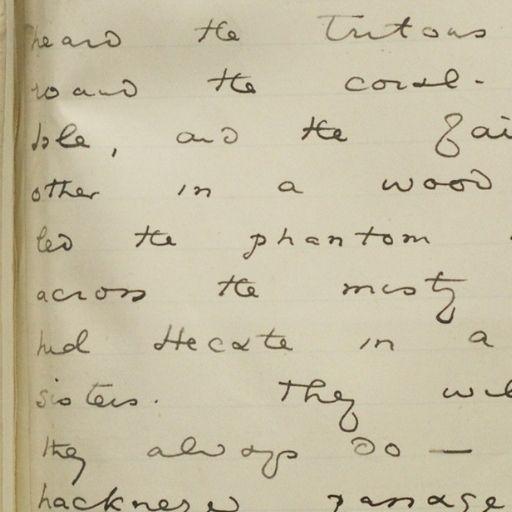 heard the Tritons
round the coral-
Isle, and the fai
other in a wood
led the phantom
across the misty
hid Hecate in a
sisters. They wil
they always do —
hackneyed passage